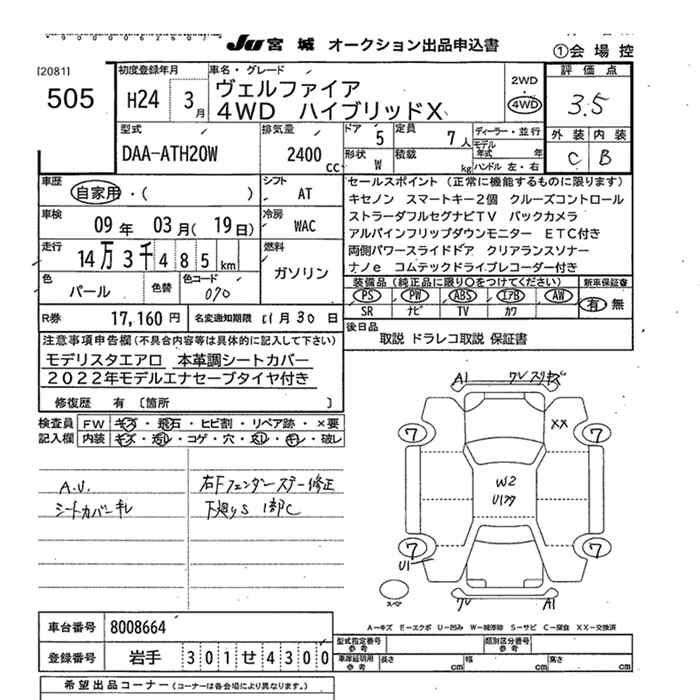 JU 宮城 オークション出品申込書
①会場控
[2081]
505
初度登録年月
H24 3月
車名・グレード
ヴェルファイア
4WD ハイブリッドX
2WD
・
4WD
評価点
3.5
外装 内装
C B
型式
DAA-ATH20W
排気量
2400 cc
ドア 5
定員 7人
ディーラー・並行
モデル年式 年
形状 W
積載 kg
ハンドル 左・右
車歴
自家用・( )
シフト
AT
車検
09年 03月(19日)
冷房
WAC
走行
14万3千485km
燃料
ガソリン
色
パール
色替
色コード
070
R券 17,160円
名変通知期限 11月30日
セールスポイント (正常に機能するものに限ります)
キセノン スマートキー2個 クルーズコントロール
ストラーダフルセグナビTV バックカメラ
アルパインフリップダウンモニター ETC付き
両側パワースライドドア クリアランスソナー
ナノe コムテックドライブレコーダー付き
装備品(純正品に限り○をつけてください)
新車保証書
PS PW ABS エアB AW
有・無
SR ナビ TV カワ
後日品
取説 ドラレコ取説 保証書
注意事項申告欄(不具合内容等は具体的に記入して下さい)
モデリスタエアロ 本革調シートカバー
2022年モデルエナセーブタイヤ付き
修復歴 有 〔箇所 〕
検査員記入欄
FW キズ・飛石・ヒビ割・リペア跡・×要
内装 キズ・汚れ・コゲ・穴・スレ・キレ・破レ
A.U.
シートカバーキレ
右Fフェンダーステー修正
下廻りS 1部C
A1 ワレスリキズ
XX
7 7
W2
U1アタ
7 7
U1
スペア
ワレ A1
A-キズ E-エクボ U-凹み W-補修跡 S-サビ C-腐食 XX-交換済
車台番号 8008664
登録番号 岩手 301せ4300
型式指定番号 参考
類別区分番号 参考
車庫証明用 参考 長さ cm 幅 cm 高さ cm
希望出品コーナー(コーナーは各会場により異なります。)